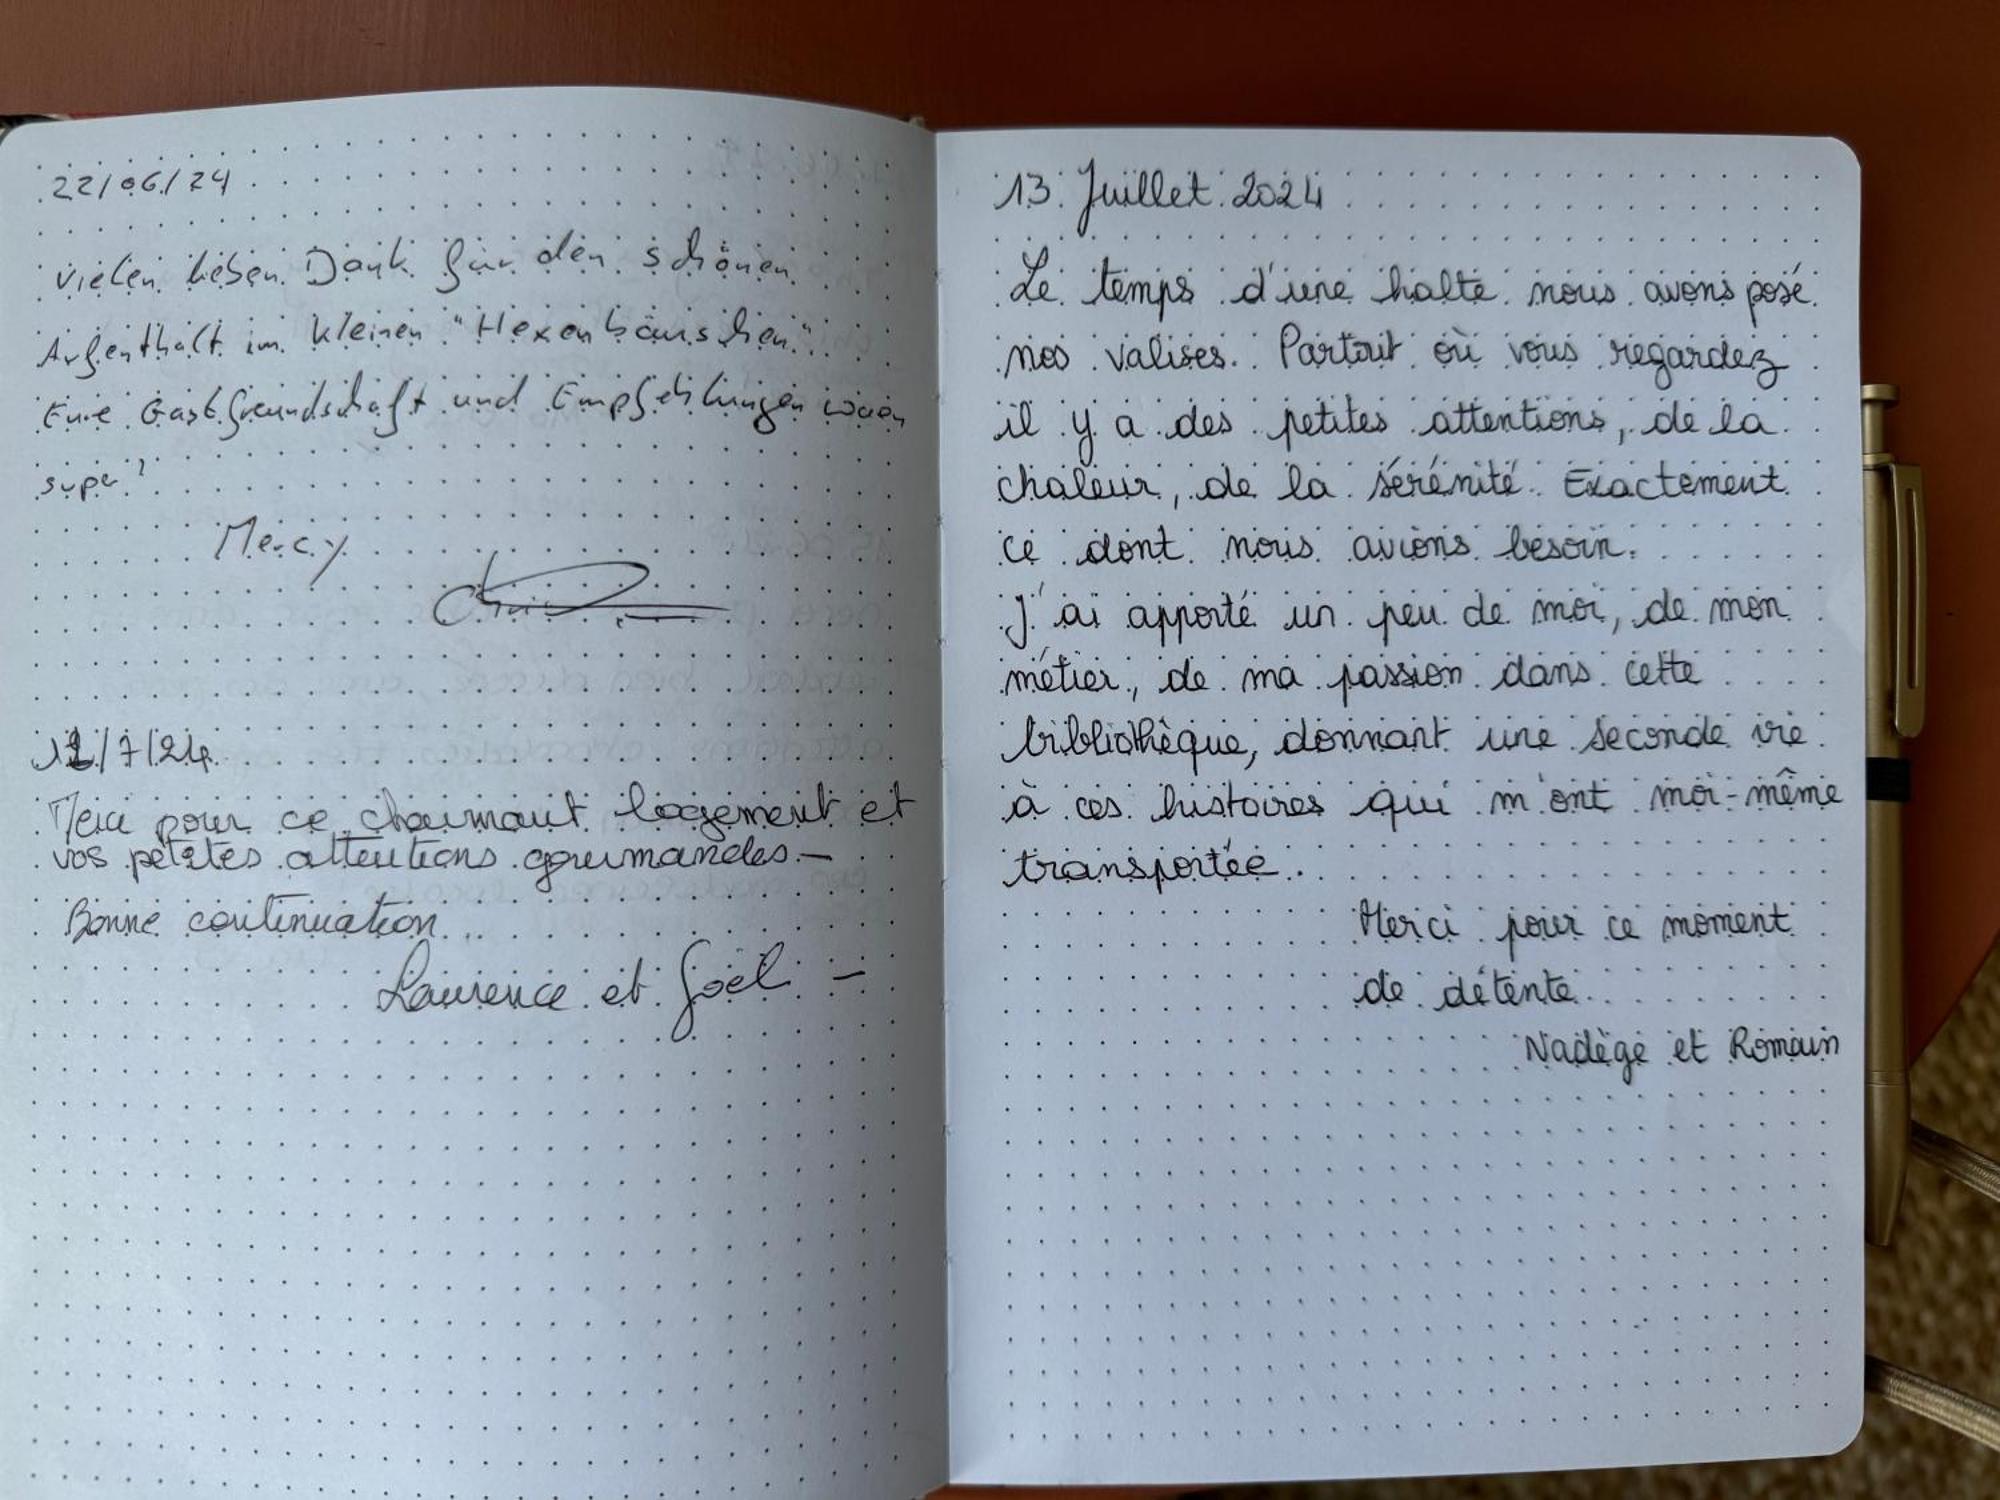 22/06/24
Vielen lieben Dank für den schönen
Aufenthalt im kleinen "Hexenhäuschen".
Eure Gastfreundschaft und Empfehlungen waren
super!
Mercy
12/7/24
Merci pour ce charmant logement et
vos petites attentions gourmandes. –
Bonne continuation...
Laurence et Joël –
13 Juillet 2024
Le temps d'une halte nous avons posé
nos valises. Partout où vous regardez
il y a des petites attentions, de la
chaleur, de la sérénité. Exactement
ce dont nous avions besoin.
J'ai apporté un peu de moi, de mon
métier, de ma passion dans cette
bibliothèque, donnant une seconde vie
à ces histoires qui m'ont moi-même
transportée.
Merci pour ce moment
de détente.
Nadège et Romain